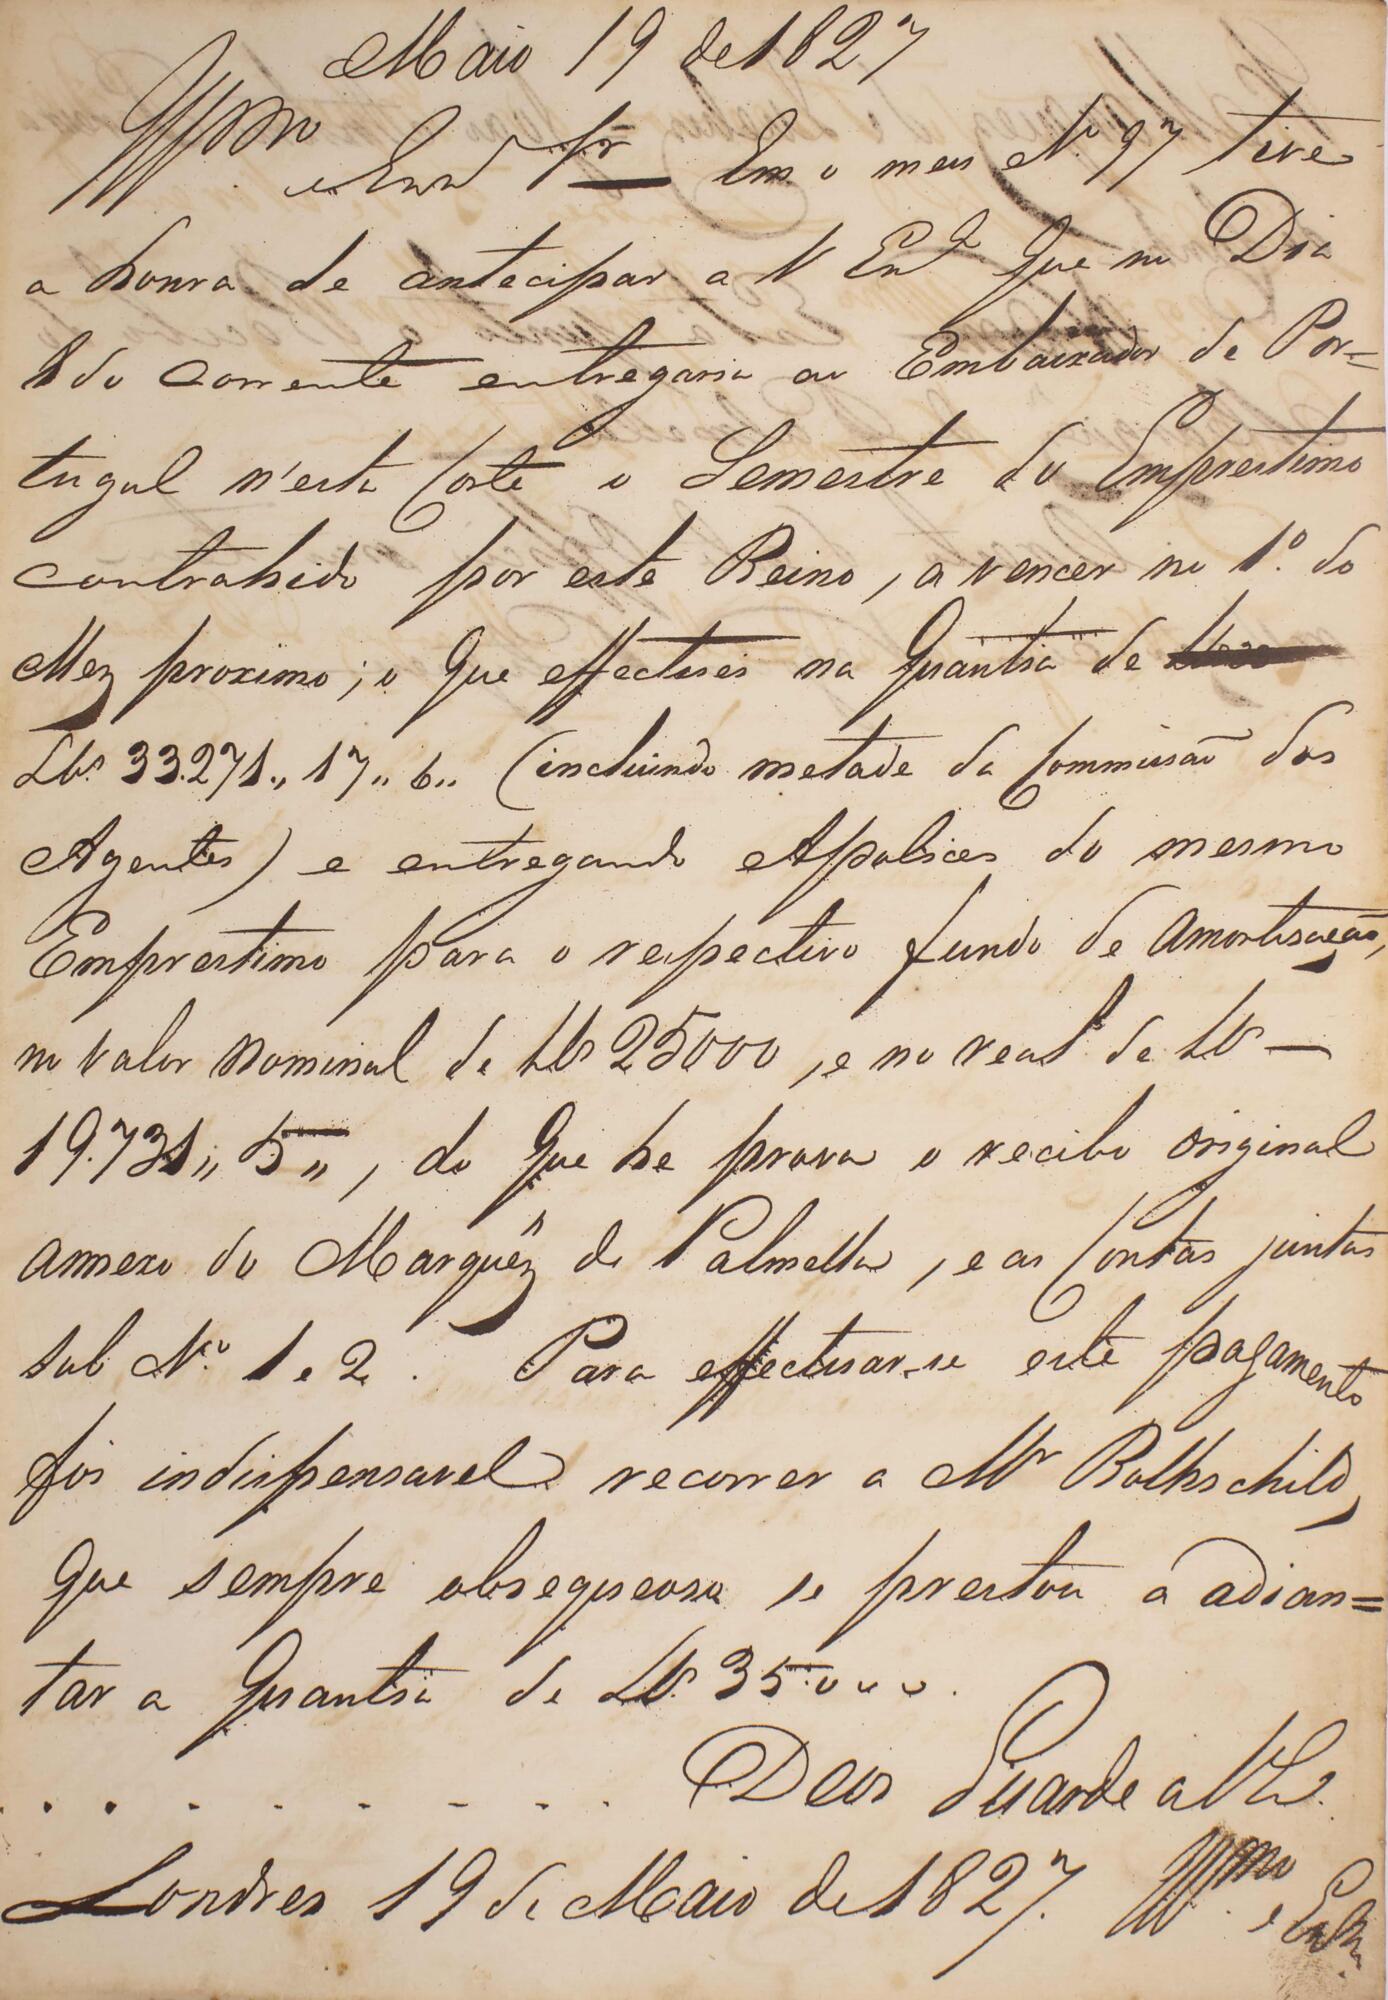 Maio 19 de 1827
Illmo e Exmo Sr Em o meu No 97 tive
a honra de antecipar a V Exa que no Dia
8 do corrente entregaria ao Embaixador de Por=
tugal n'esta Corte o Semestre do Emprestimo
contrahido por este Reino, a vencer no 1o. do
Mez proximo; o que effectuei na Quantia de
Lbs 33.271,, 17,, 6,, (incluindo metade da Commissão dos
Agentes) e entregando Apolices do mesmo
Emprestimo para o respectivo fundo de Amortisação,
no valor nominal de Lbs 25000, e no real de Lbs —
19.731,, 5,, , do que he prova o recibo original
annexo do Marquêz de Palmella, e as Contas juntas
sub No. 1 e 2. Para effectuar-se este pagamento
foi indispensavel recorrer a Mr Rothschild,
que sempre obsequioso se prestou a adian=
tar a Quantia de Lbs. 35.000.
. . . . . . . . . . Deos Guarde a V E.
Londres 19 de Maio de 1827. Illmo
e Exmo.